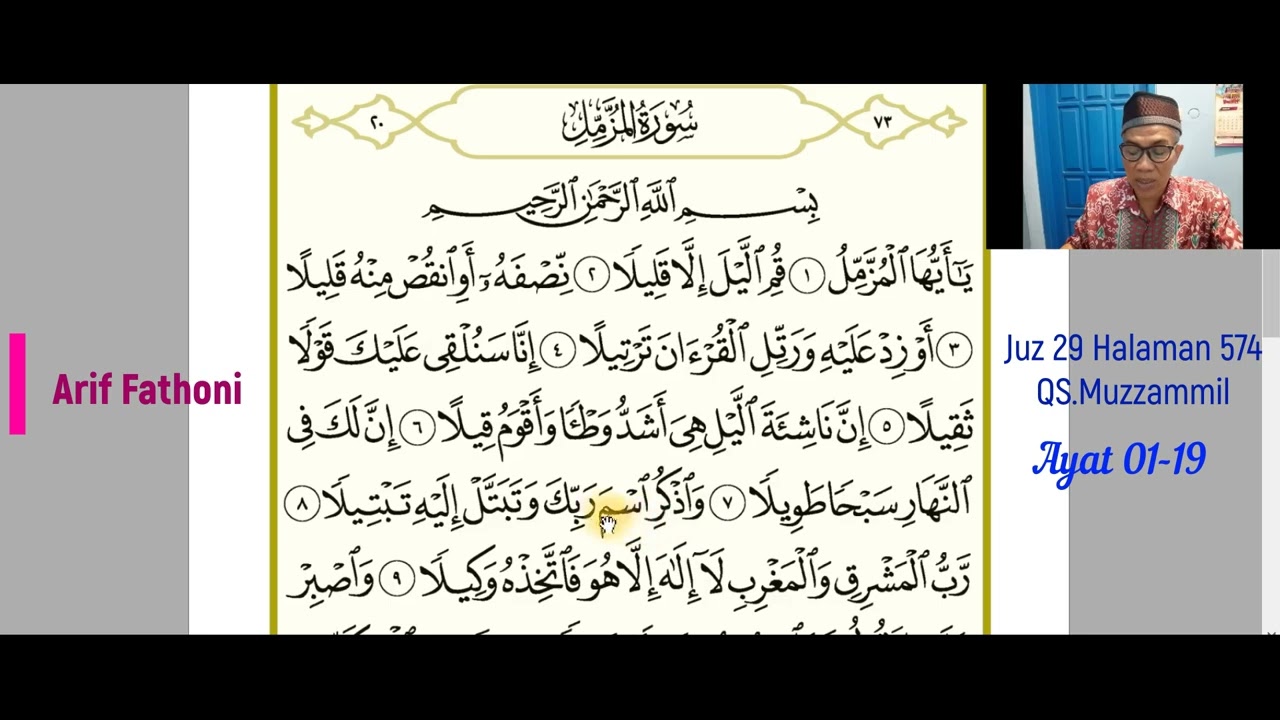 ٧٣ سُورَةُ الْمُزَّمِّلِ ٢٠
بِسْمِ ٱللَّهِ ٱلرَّحْمَٰنِ ٱلرَّحِيمِ
يَٰٓأَيُّهَا ٱلْمُزَّمِّلُ ١ قُمِ ٱلَّيْلَ إِلَّا قَلِيلًا ٢ نِّصْفَهُۥٓ أَوِ ٱنقُصْ مِنْهُ قَلِيلًا
٣ أَوْ زِدْ عَلَيْهِ وَرَتِّلِ ٱلْقُرْءَانَ تَرْتِيلًا ٤ إِنَّا سَنُلْقِى عَلَيْكَ قَوْلًا
ثَقِيلًا ٥ إِنَّ نَاشِئَةَ ٱلَّيْلِ هِىَ أَشَدُّ وَطْـًٔا وَأَقْوَمُ قِيلًا ٦ إِنَّ لَكَ فِى
ٱلنَّهَارِ سَبْحًا طَوِيلًا ٧ وَٱذْكُرِ ٱسْمَ رَبِّكَ وَتَبَتَّلْ إِلَيْهِ تَبْتِيلًا ٨
رَّبُّ ٱلْمَشْرِقِ وَٱلْمَغْرِبِ لَآ إِلَٰهَ إِلَّا هُوَ فَٱتَّخِذْهُ وَكِيلًا ٩ وَٱصْبِرْ
Arif Fathoni
Juz 29 Halaman 574
QS.Muzzammil
Ayat 01-19